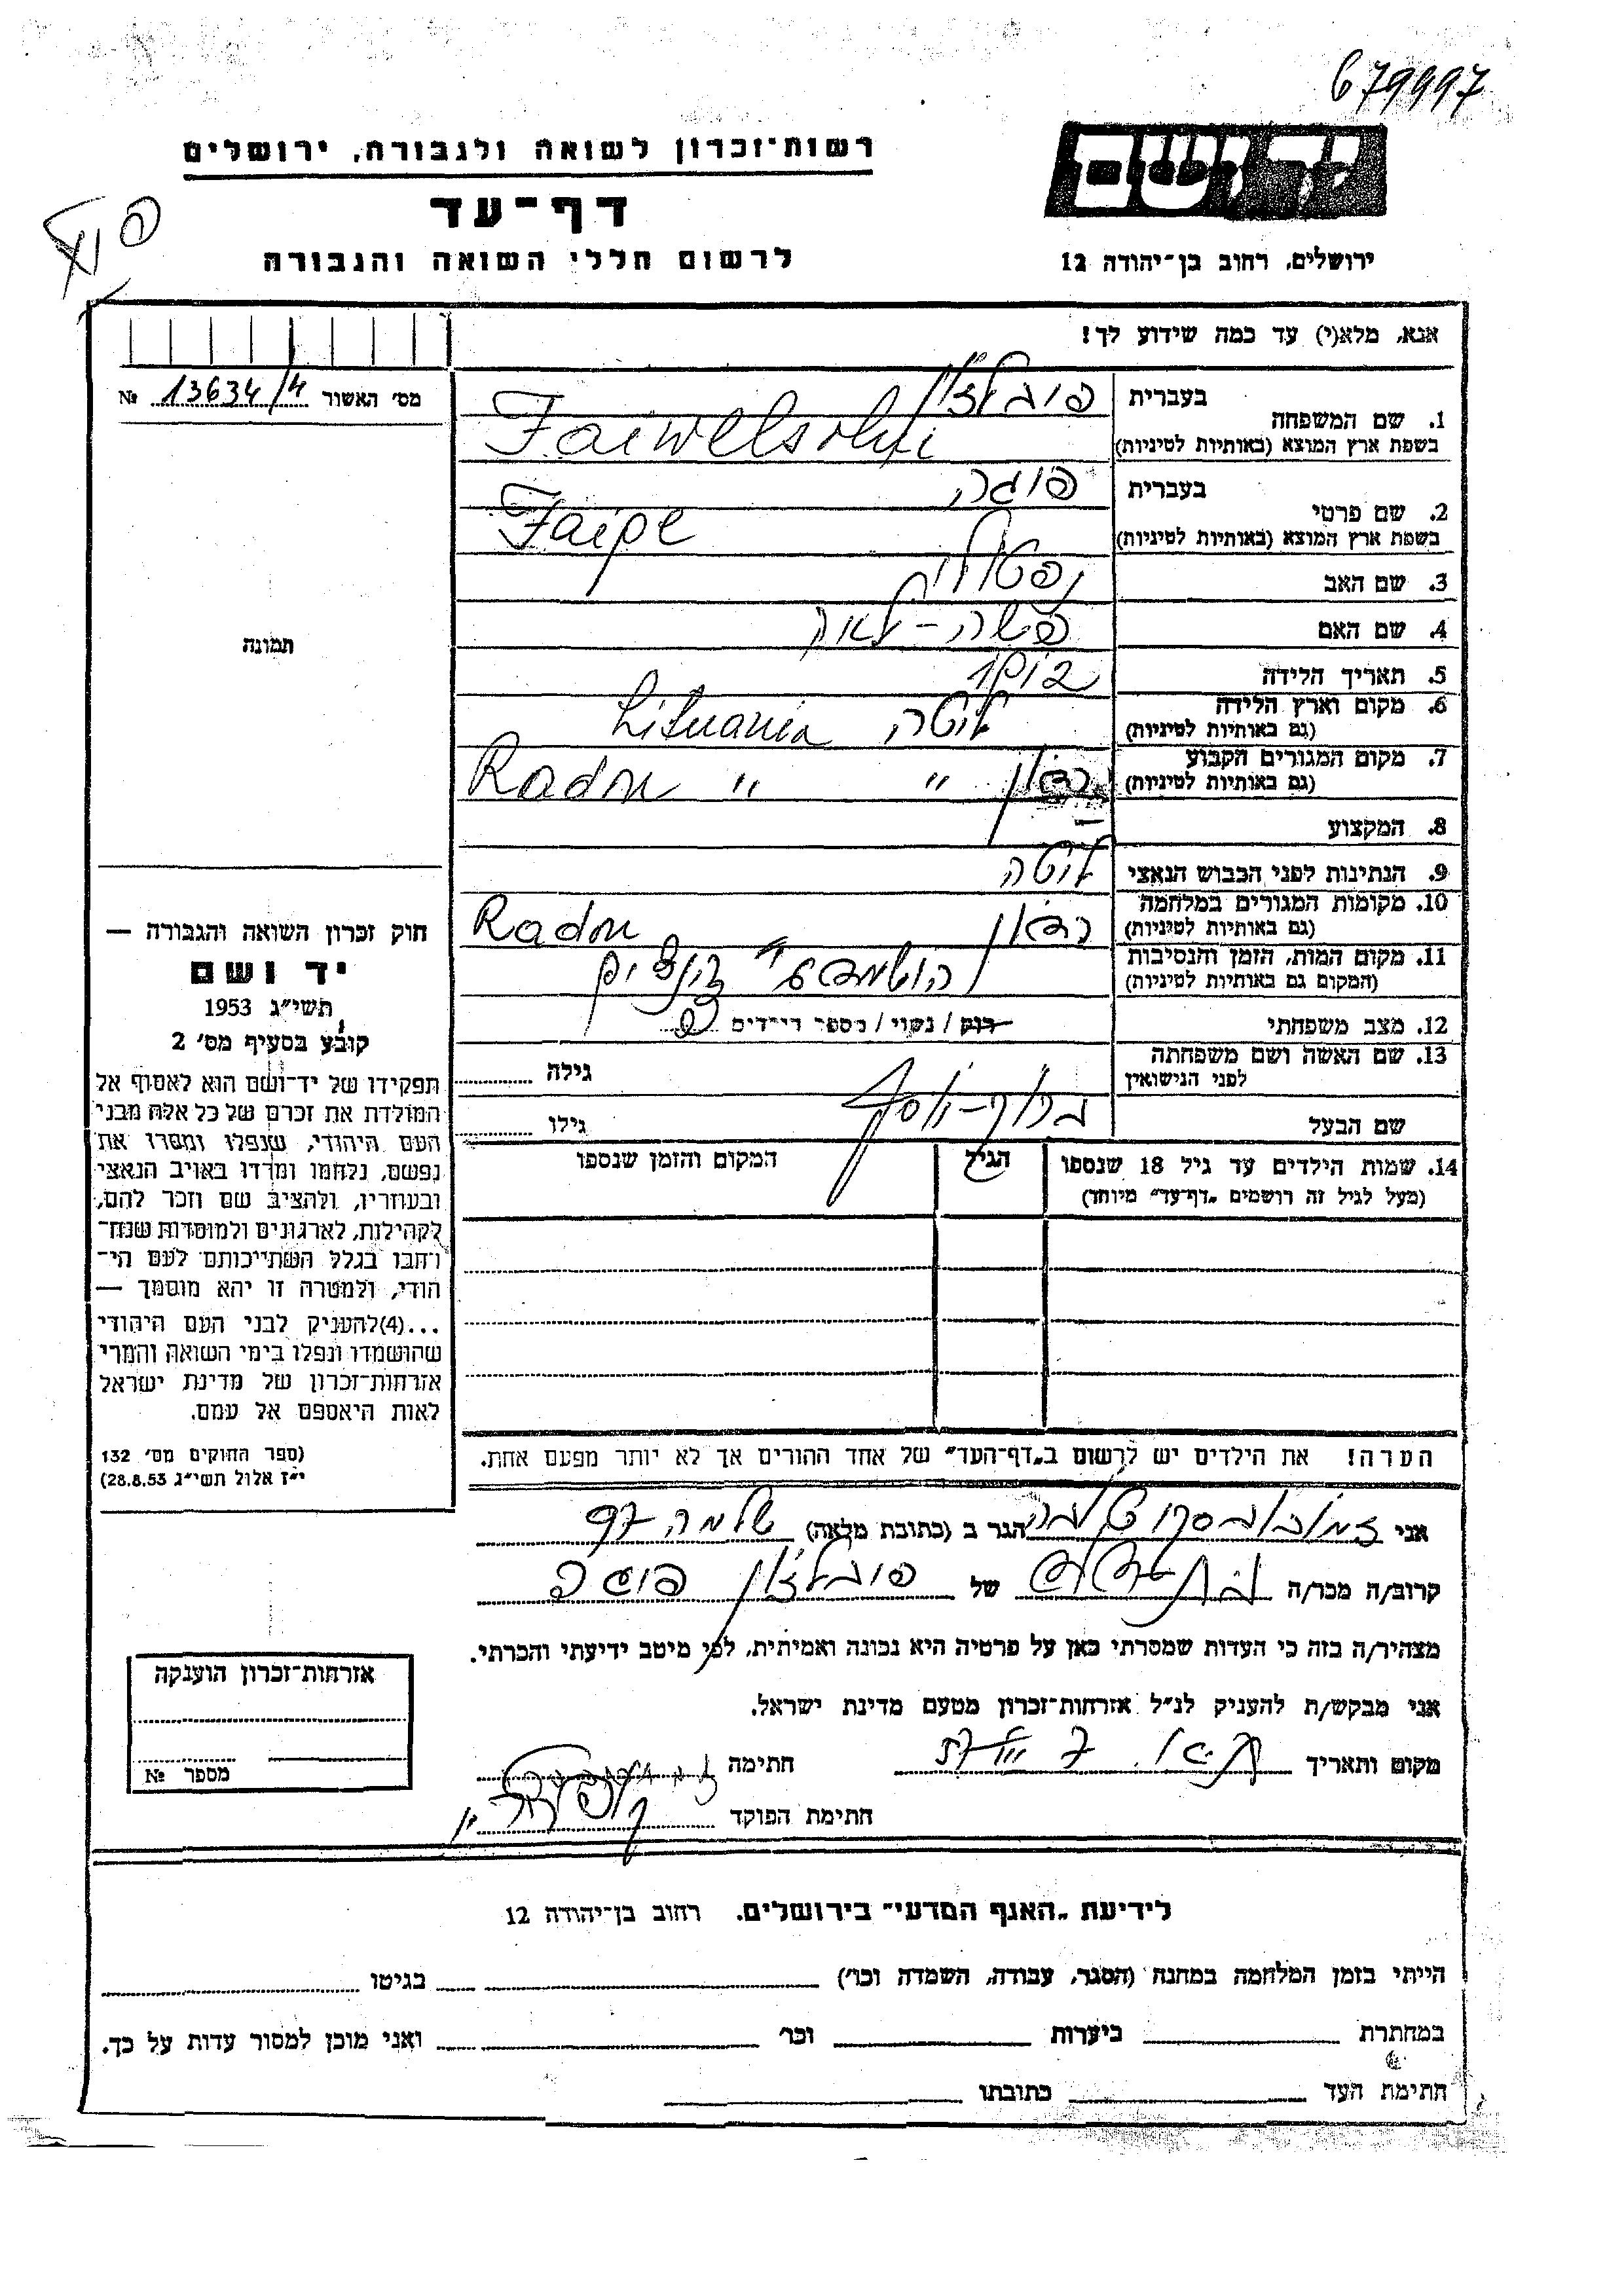 679997
רשות־זכרון לשואה ולגבורה, ירושלים
יד ושם
דף־עד
לרשום חללי השואה והגבורה
ירושלים, רחוב בן־יהודה 12
אנא, מלא(י) עד כמה שידוע לך!
מס׳ האשור 13634/4 №
תמונה
1. שם המשפחה בעברית
בשפת ארץ המוצא (באותיות לטיניות)
2. שם פרטי בעברית
בשפת ארץ המוצא (באותיות לטיניות) Faipe
3. שם האב
4. שם האם פשה-לאה
5. תאריך הלידה
6. מקום וארץ הלידה ליטה Lituania
(גם באותיות לטיניות)
7. מקום המגורים הקבוע " " Radon
(גם באותיות לטיניות)
8. המקצוע –
9. הנתינות לפני הכבוש הנאצי ליטה
10. מקומות המגורים במלחמה רדון Radon
(גם באותיות לטיניות)
11. מקום המות, הזמן והנסיבות
(המקום גם באותיות לטיניות)
12. מצב משפחתי רווק / נשוי / מספר הילדים
13. שם האשה ושם משפחתה
לפני הנישואין גילה
שם הבעל ברוך-יוסף גילו
14. שמות הילדים עד גיל 18 שנספו הגיל המקום והזמן שנספו
(מעל לגיל זה רושמים „דף־עד״ מיוחד)
חוק זכרון השואה והגבורה —
יד ושם
תשי״ג 1953
קובע בסעיף מס׳ 2
תפקידו של יד־ושם הוא לאסוף אל
המולדת את זכרם של כל אלה מבני
העם היהודי, שנפלו ומסרו את
נפשם, נלחמו ומרדו באויב הנאצי
ובעוזריו, ולהציב שם וזכר להם,
לקהילות, לארגונים ולמוסדות שנח־
רבו בגלל השתייכותם לעם הי־
הודי, ולמטרה זו יהא מוסמך —
...(4)להעניק לבני העם היהודי
שהושמדו ונפלו בימי השואה והמרי
אזרחות־זכרון של מדינת ישראל
לאות היאספם אל עמם.
(ספר החוקים מס׳ 132
י״ז אלול תשי״ג 28.8.53)
הערה! את הילדים יש לרשום ב„דף־העד״ של אחד ההורים אך לא יותר מפעם אחת.
אני הגר ב (כתובת מלאה) שלמה 97
קרוב/ה מכר/ה של
מצהיר/ה בזה כי העדות שמסרתי כאן על פרטיה היא נכונה ואמיתית, לפי מיטב ידיעתי והכרתי.
אני מבקש/ת להעניק לנ״ל אזרחות־זכרון מטעם מדינת ישראל.
מקום ותאריך חתימה
חתימת הפוקד
אזרחות־זכרון הוענקה
מספר №
לידיעת „האגף המדעי״ בירושלים. רחוב בן־יהודה 12
הייתי בזמן המלחמה במחנה (הסגר, עבודה, השמדה וכו׳) בגיטו
במחתרת ביערות וכו׳ ואני מוכן למסור עדות על כך.
חתימת העד כתובתו